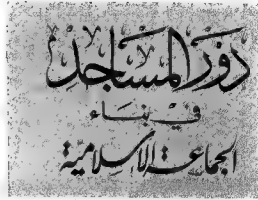 دور المساجد
في بناء
الجماعة الإسلامية